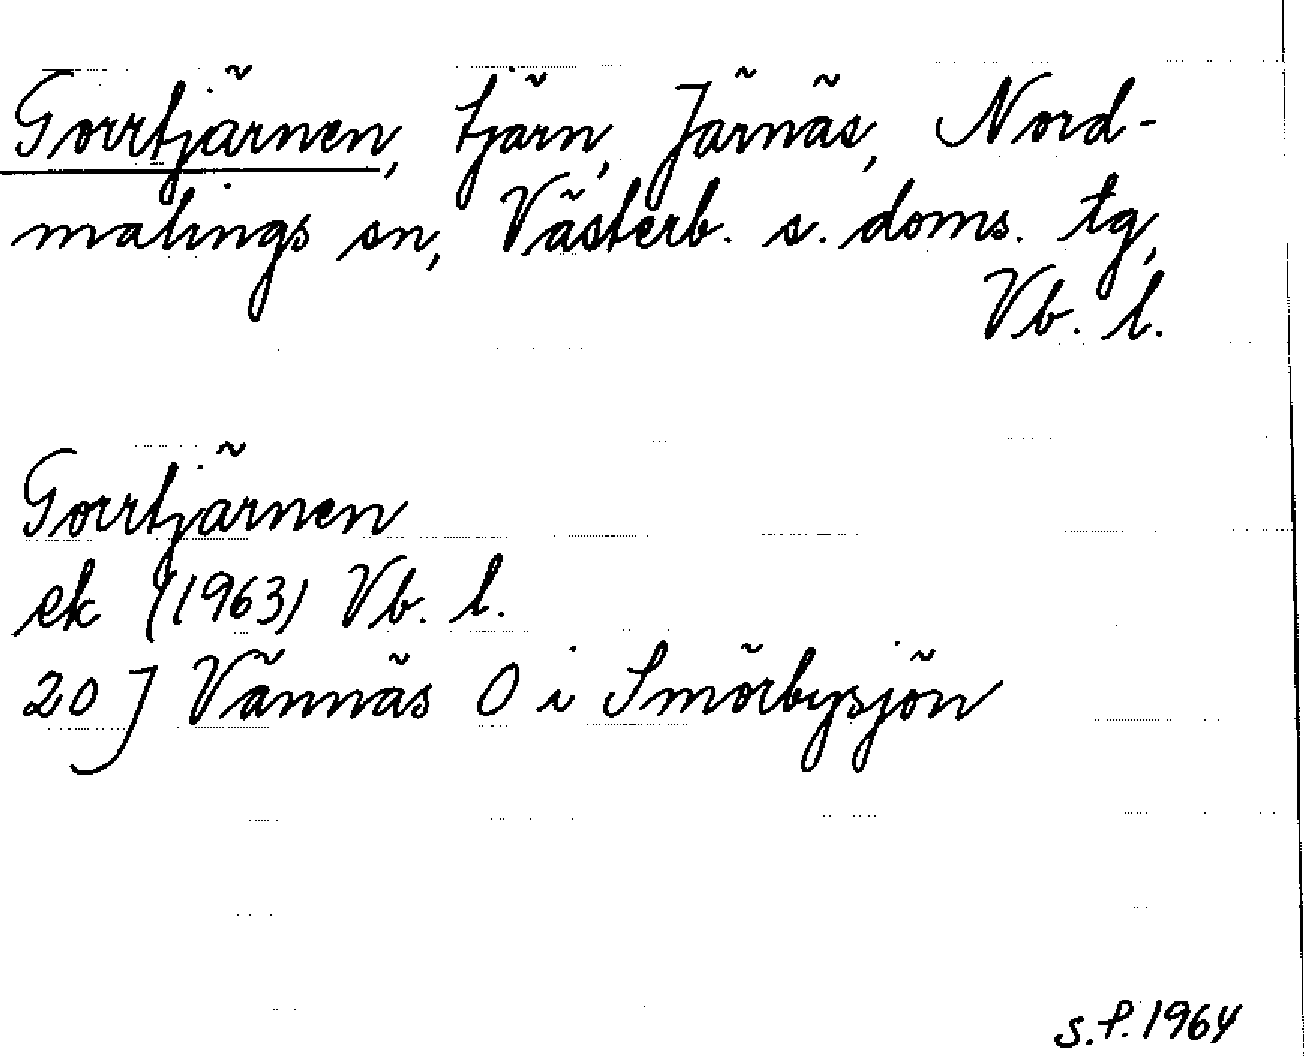 Gorrtjärnen, tjärn, Järnäs, Nord-
malings sn, Västerb. s. doms. tg,
Vb. l.
Gorrtjärnen
ek (1963) Vb. l.
20 J Vännäs O i Smörbysjön
S.P. 1964